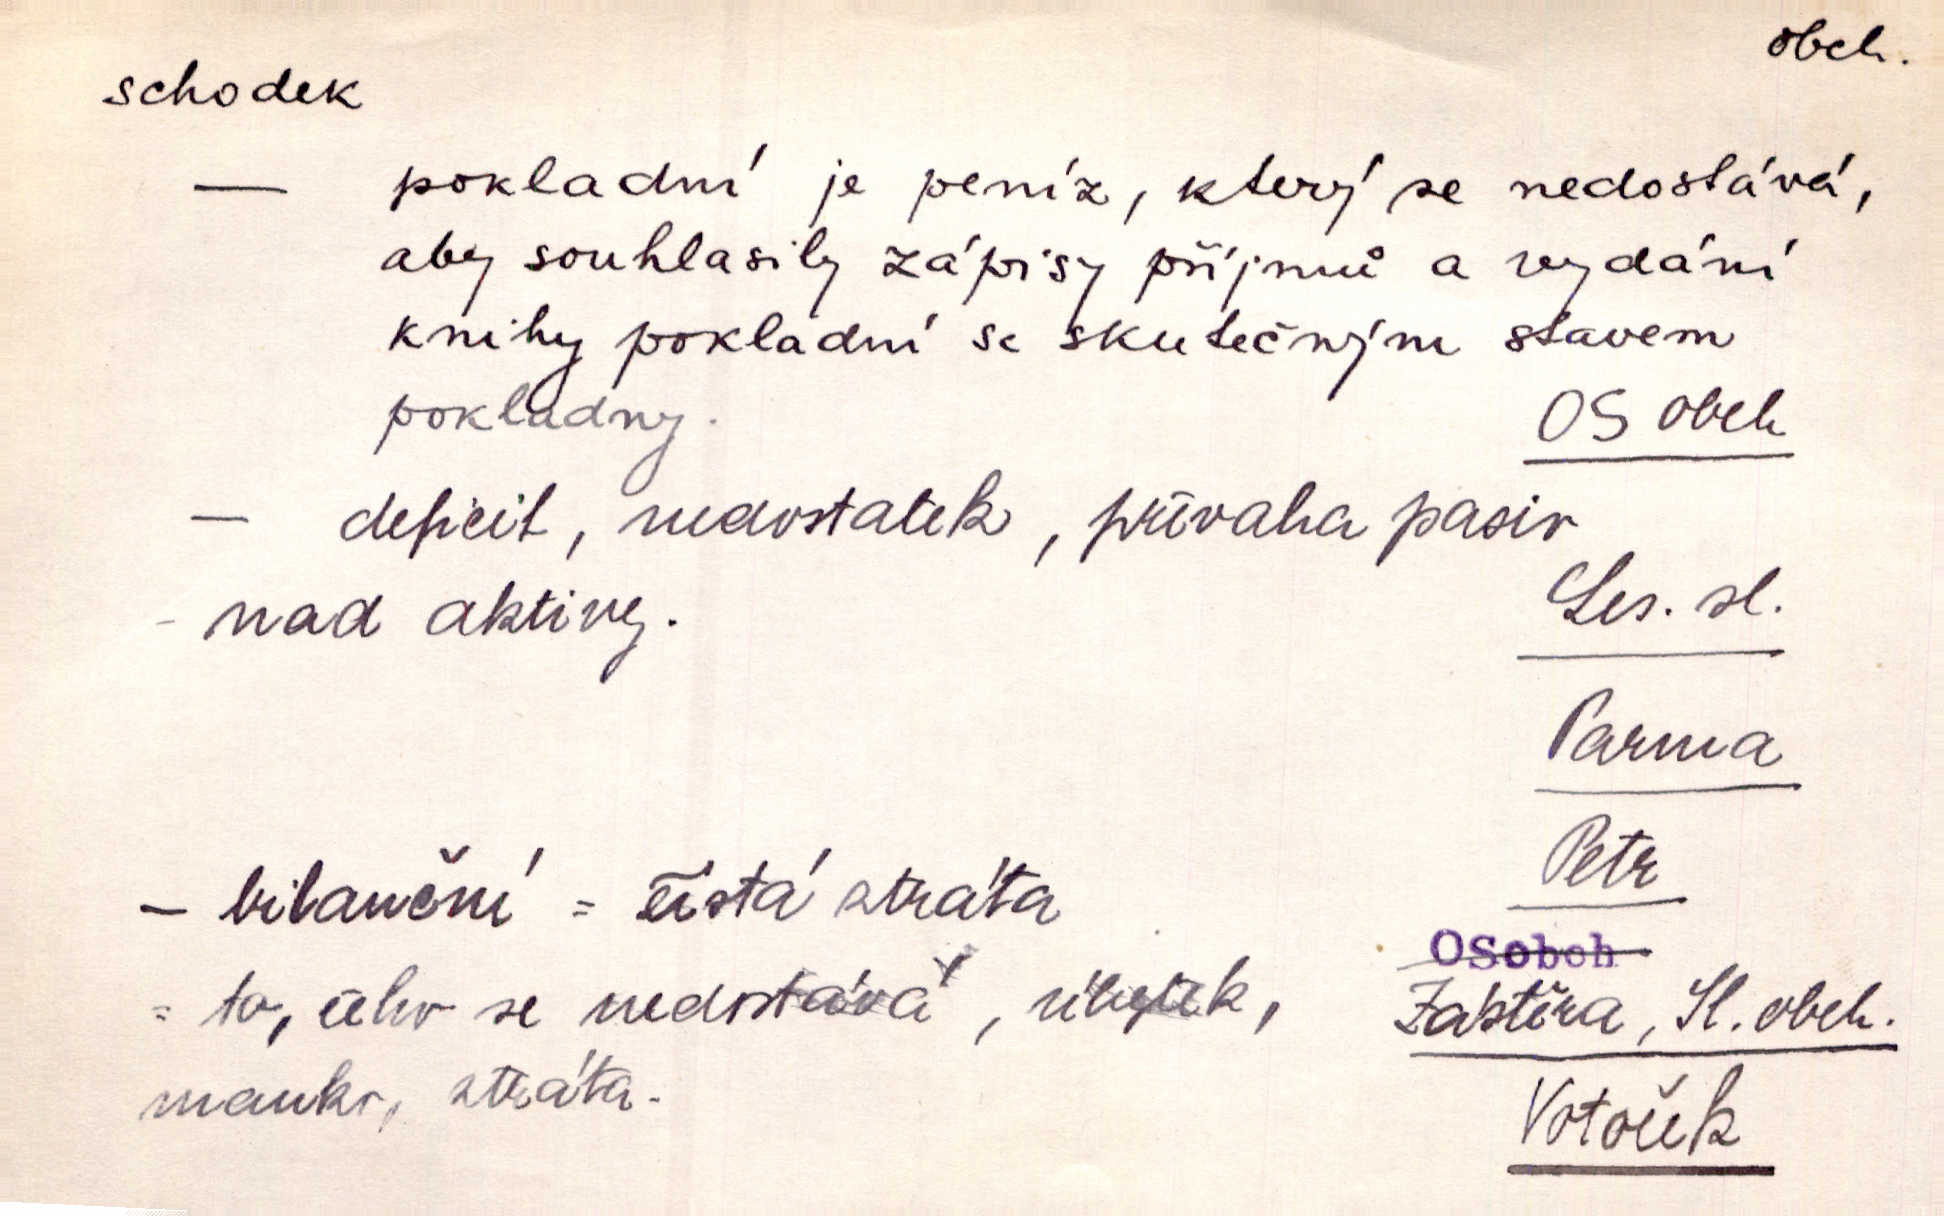 obch.
schodek
— pokladní je peníz, který se nedostává,
aby souhlasily zápisy příjmů a vydání
knihy pokladní se skutečným stavem
pokladny.
OS obch
— deficit, nedostatek, převaha pasiv
- nad aktivy.
Les. sl.
Parma
Petr
— bilanční = čistá ztráta
OSobch
= to, čeho se nedostává, úbytek,
Zaštěra, Sl. obch.
manko, ztráta.
Votoček